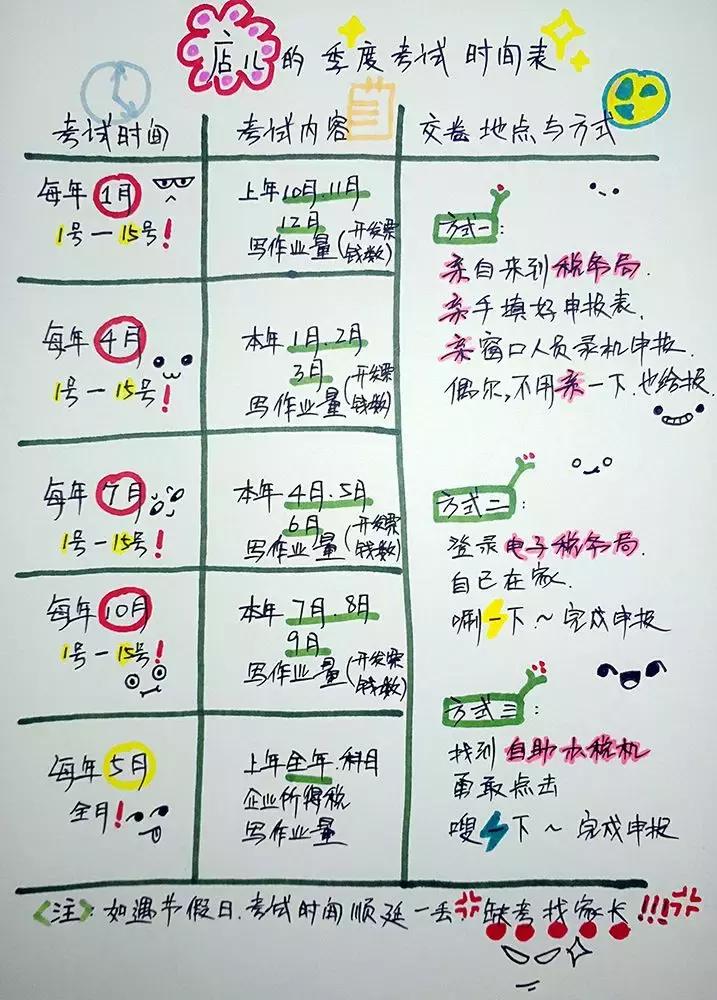 店儿的季度考试时间表
考试时间
考试内容
交卷地点与方式
每年1月
1号—15号!
上年10月.11月
12月
写作业量(开发票
钱数)
每年4月
1号—15号!
本年1月.2月
3月
写作业量(开发票
钱数)
每年7月
1号—15号!
本年4月.5月
6月
写作业量(开发票
钱数)
每年10月
1号—15号!
本年7月.8月
9月
写作业量(开发票
钱数)
每年5月
全月!
上年全年.科目
企业所得税
写作业量
方式一:
亲自来到税务局.
亲手填好申报表.
亲窗口人员录机申报.
偶尔,不用亲一下.也给报
方式二:
登录电子税务局.
自己在家.
唰一下~完成申报
方式三:
找到自助办税机
勇敢点击
嗖一下~完成申报
<注>:如遇节假日.考试时间顺延一丢 缺考找家长!!!